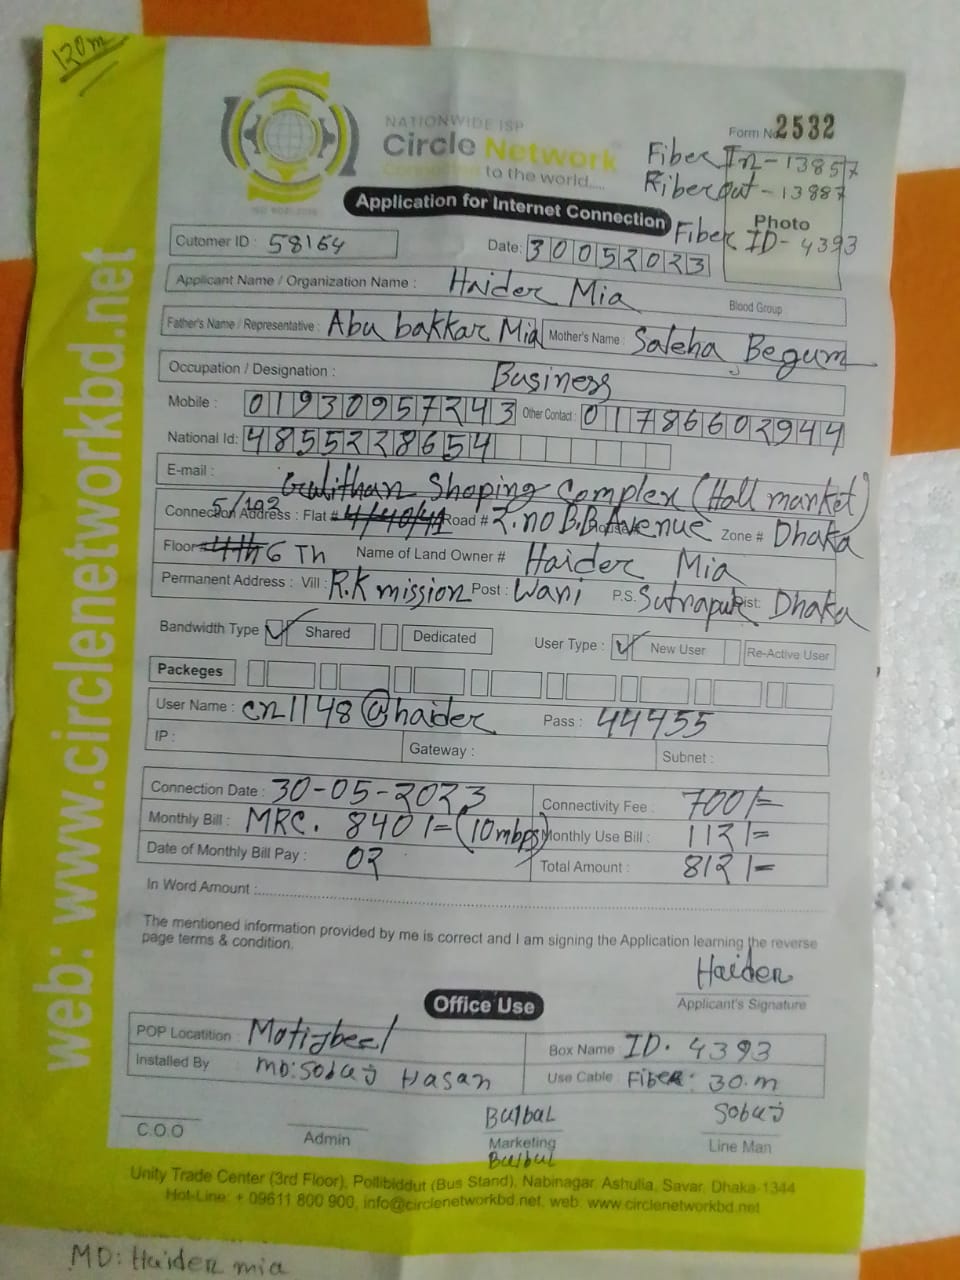 120m
NATIONWIDE ISP
Circle Network
Connecting to the world.....
Form No 2532
Fiber In - 13857
Fiber out - 13887
Photo
Fiber ID - 4393
Application for Internet Connection
Cutomer ID : 58164
Date: 30052023
Applicant Name / Organization Name : Haider Mia
Blood Group
Father's Name / Representative : Abu bakkar Mia Mother's Name : Saleha Begum
Occupation / Designation : Business
Mobile : 01930957243 Other Contact : 01786602944
National Id: 4855228654
E-mail :
Gulithan Shoping Complex (Hall market)
Connection Address : Flat # 5/102 4/40/41 Road # 2.no B.B Avenue Zone # Dhaka
Floor # 4th 6 Th Name of Land Owner # Haider Mia
Permanent Address : Vill : R.K mission Post : Wari P.S. Sutrapur Dist: Dhaka
Bandwidth Type Shared Dedicated User Type : New User Re-Active User
Packeges
User Name : cn1148@haider Pass : 44455
IP : Gateway : Subnet :
Connection Date : 30-05-2023 Connectivity Fee : 700/=
Monthly Bill : MRC. 840/= (10mbps) Monthly Use Bill : 112/=
Date of Monthly Bill Pay : 02 Total Amount : 812/=
In Word Amount :
The mentioned information provided by me is correct and I am signing the Application learning the reverse
page terms & condition.
Haider
Applicant's Signature
Office Use
POP Locatition : Motijheel Box Name : ID. 4393
Installed By MD: Sobuj Hasan Use Cable : Fiber: 30.m
C.O.O
Admin
Bulbul
Marketing
Bulbul
Sobuj
Line Man
Unity Trade Center (3rd Floor), Pollibiddut (Bus Stand), Nabinagar, Ashulia, Savar, Dhaka-1344
Hot-Line: + 09611 800 900, info@circlenetworkbd.net, web: www.circlenetworkbd.net
web: www.circlenetworkbd.net
MD: Haider mia